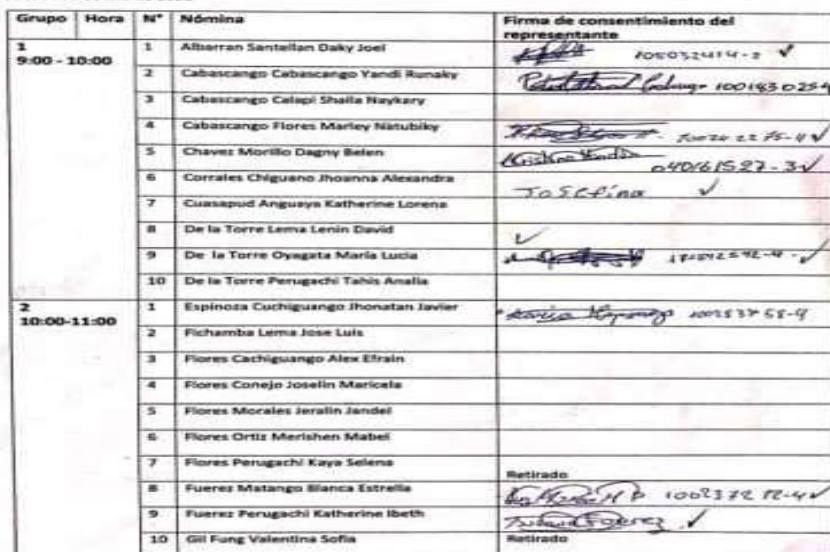 Grupo Hora N° Nómina Firma de consentimiento del representante
1 9:00 - 10:00
1 Albarran Santellan Daky Joel
2 Cabascango Cabascango Yandi Runaky 100183025
3 Cabascango Calapi Shaila Naykary
4 Cabascango Flores Marley Natubiky
5 Chavez Morillo Dagny Belen 040161527-3 ✓
6 Corrales Chiguano Jhoanna Alexandra Josefina ✓
7 Cuasapud Anguaya Katherine Lorena
8 De la Torre Lema Lenin David ✓
9 De la Torre Oyagata Maria Lucia
10 De la Torre Perugachi Tahis Analia
2 10:00-11:00
1 Espinoza Cuchiguango Jhonatan Javier
2 Pichamba Lema Jose Luis
3 Flores Cachiguango Alex Efrain
4 Flores Conejo Joselin Maricela
5 Flores Morales Jeralin Jandel
6 Flores Ortiz Merishen Mabel
7 Flores Perugachi Kaya Selena Retirado
8 Fuerez Matango Blanca Estrella
9 Fuerez Perugachi Katherine Ibeth ✓
10 Gil Fung Valentina Sofia Retirado